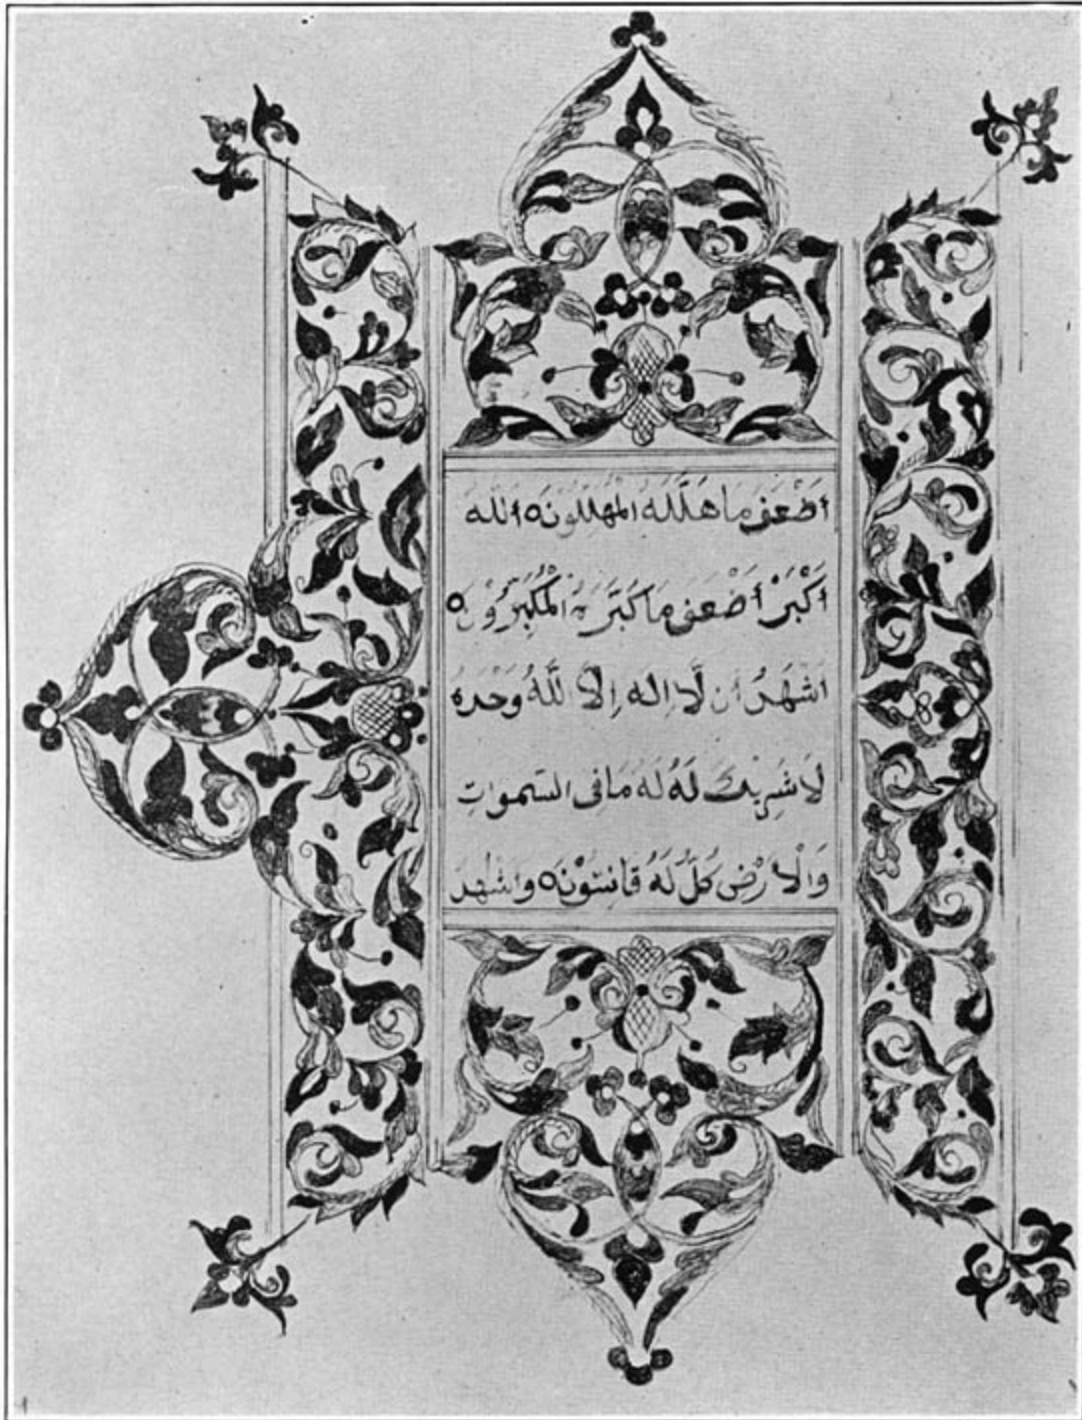 أَضْعَفَ مَا هَلَّلَهُ الْمُهَلِّلُونَ ه اَللهُ
أَكْبَرُ أَضْعَفَ مَا كَبَّرَهُ الْمُكَبِّرُوْنَ ه
اَشْهَدُ أَن لَّا اِلٰهَ اِلَّا اللّٰهُ وَحْدَهُ
لَا شَرِيْكَ لَهُ لَهُ مَا فِى السَّمٰوَاتِ
وَالْاَرْضِ كُلٌّ لَهُ قَانِتُوْنَ ه وَاشْهَدُ